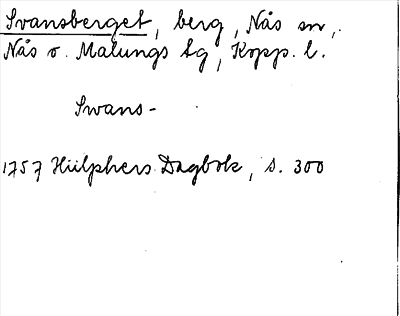 Svansberget, berg, Nås sn,
Nås o. Malungs tg, Kopp. l.
Swans-
1757 Hülphers Dagbok, s. 300